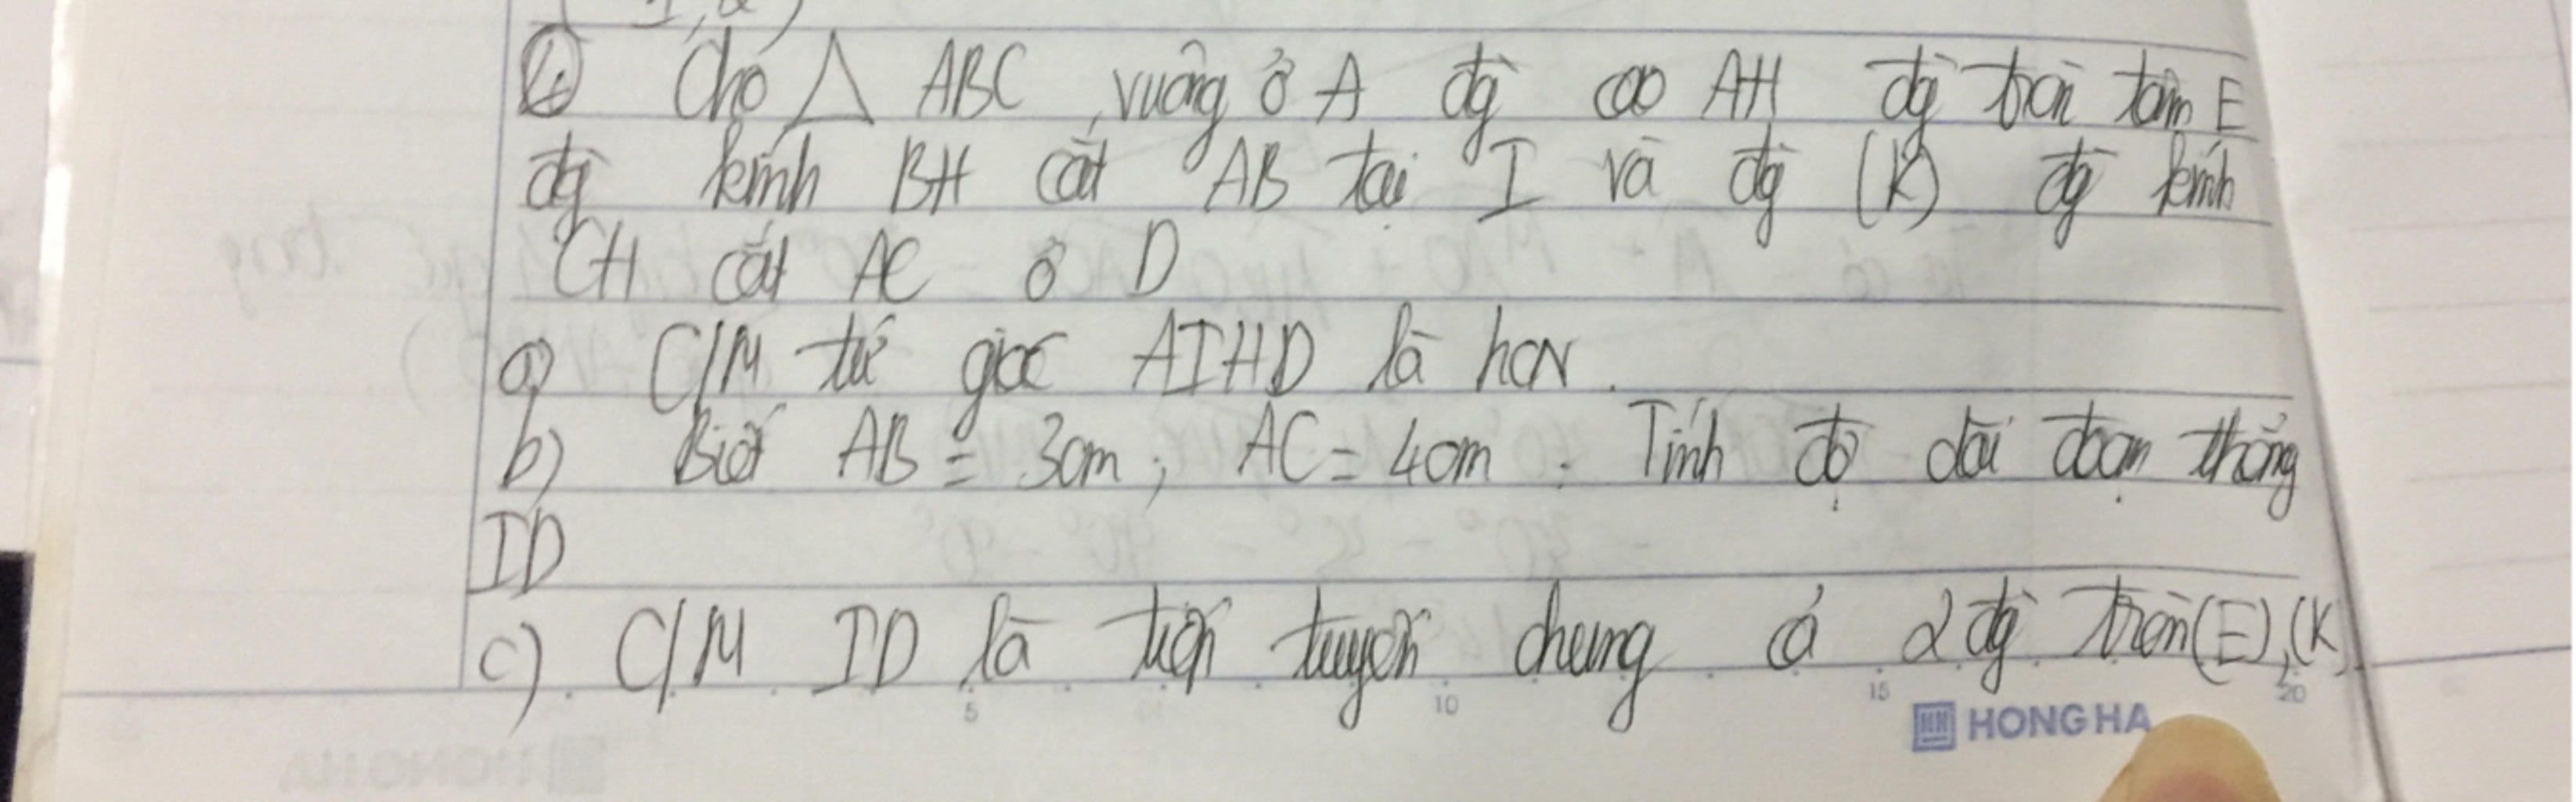 ④ Cho △ ABC, vuông ở A đg̀ cao AH đg̀ tròn tâm E
đg̀ kính BH cắt AB tại I và đg̀ (K) đg̀ kính
CH cắt AC ở D
a) C/M tứ giác AIHD là hcn.
b) Biết AB = 3cm; AC = 4cm. Tính độ dài đoạn thẳng
ID
c) C/M ID là tiếp tuyến chung củ 2 đg̀ tròn (E), (K)
5 10 15 20
HONG HA